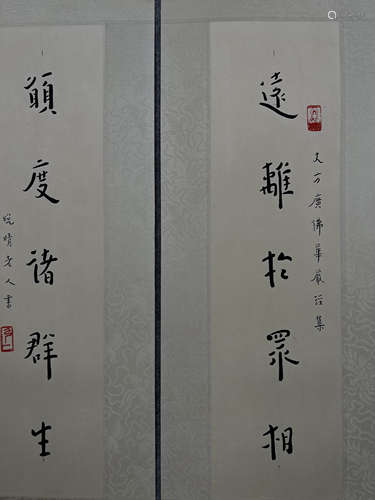 大方廣佛華嚴經集
遠離於眾相
願度諸群生
晚晴老人書